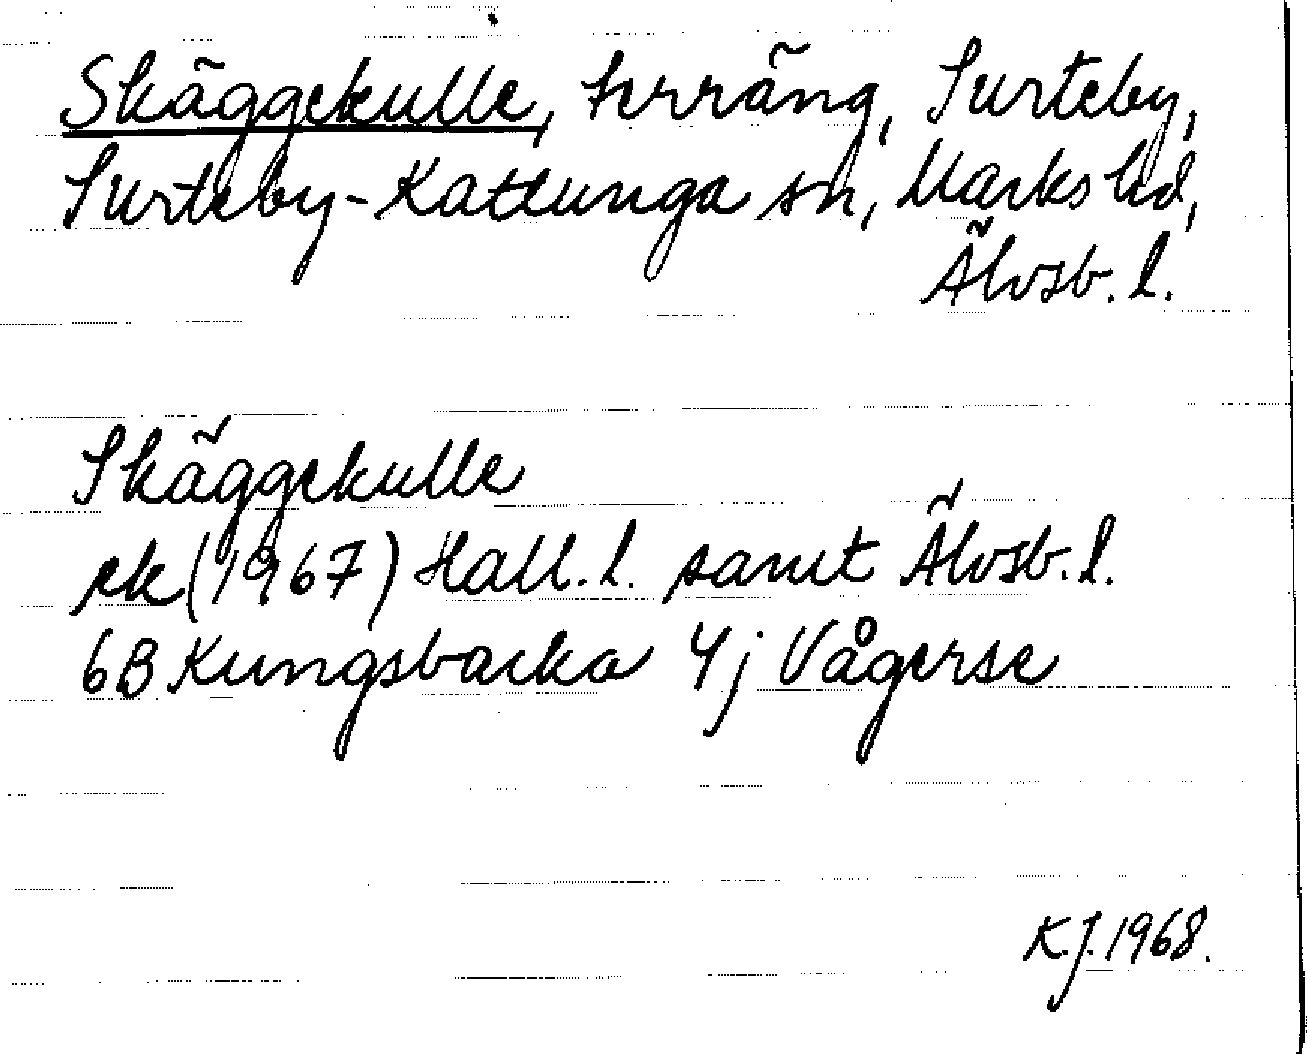 Skäggekulle, terräng, Surteby,
Surteby-Kattunga sn, Marks hd,
Älvsb. l.
Skäggekulle
ek (1967) Hall. l. samt Älvsb. l.
6B Kungsbacka 4j Vågerse
K.J. 1968.